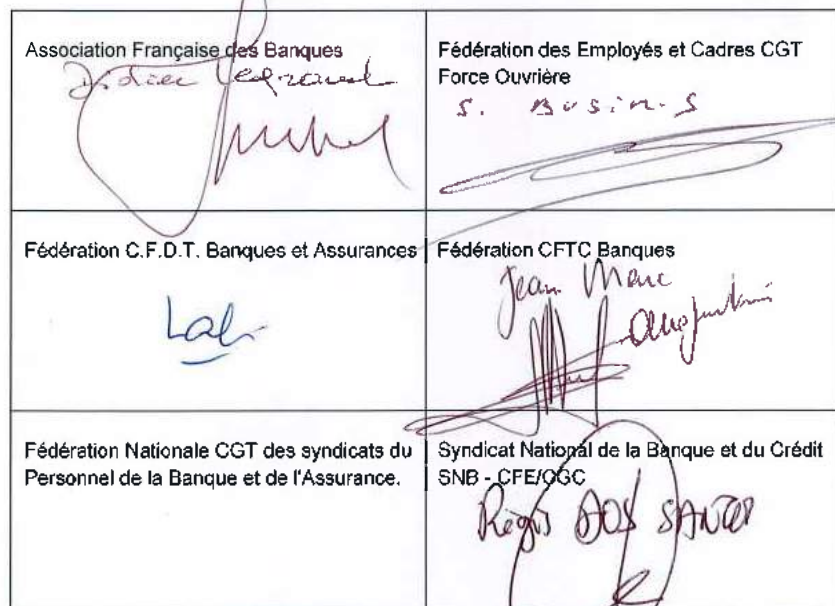 Association Française des Banques
Didier
Fédération des Employés et Cadres CGT
Force Ouvrière
S. Busiris
Fédération C.F.D.T. Banques et Assurances
Fédération CFTC Banques
Jean Marc
Fédération Nationale CGT des syndicats du
Personnel de la Banque et de l'Assurance.
Syndicat National de la Banque et du Crédit
SNB - CFE/CGC
Régis DOS SANTOS